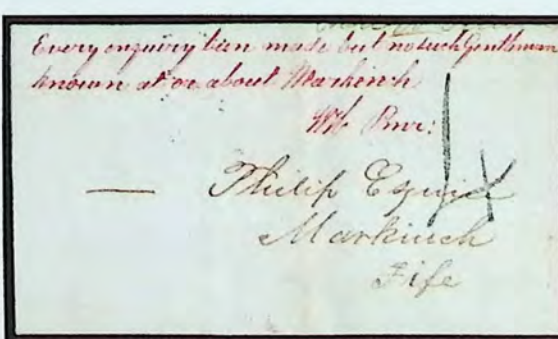 Every enquiry been made but no such Gentleman
known at or about Markinch
— Philip Esquire
Markinch
Fife